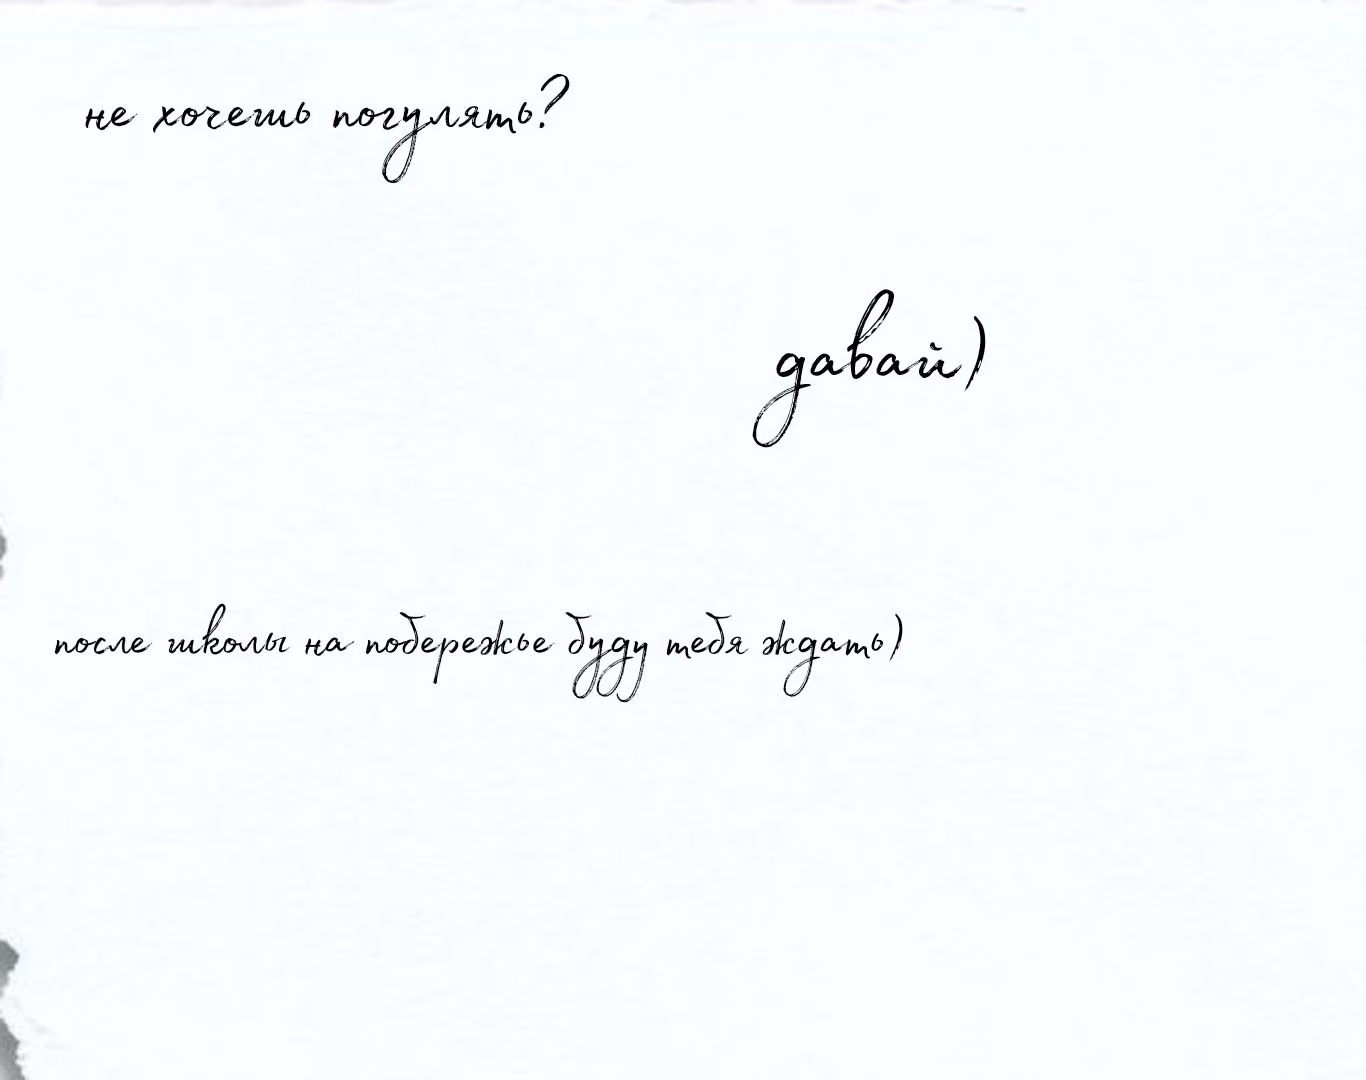 не хочешь погулять?
давай)
после школы на побережье буду тебя ждать)